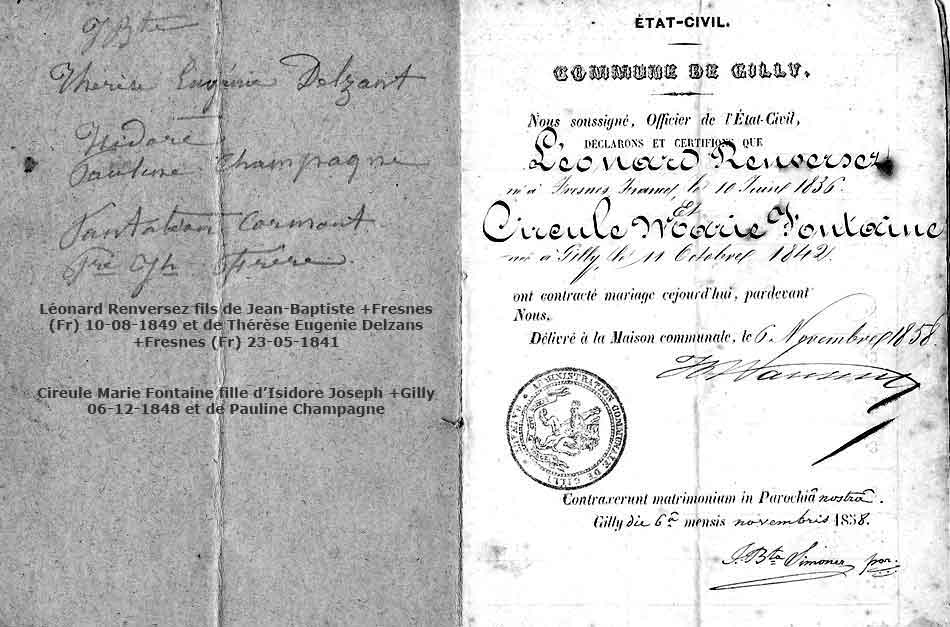 J Bte
Thérèse Eugénie Delzant
Isidore
Pauline Champagne
Pantaléon Cormant
frère
Léonard Renversez fils de Jean-Baptiste +Fresnes
(Fr) 10-08-1849 et de Thérèse Eugenie Delzans
+Fresnes (Fr) 23-05-1841
Cireule Marie Fontaine fille d’Isidore Joseph +Gilly
06-12-1848 et de Pauline Champagne
ÉTAT-CIVIL.
COMMUNE DE GILLY.
Nous soussigné, Officier de l'État-Civil,
DÉCLARONS ET CERTIFIONS QUE
Léonard Renversez
né à Fresnes France, le 10 Juin 1836.
Et
Cireule Marie Fontaine
née à Gilly, le 11 Octobre 1842.
ont contracté mariage cejourd'hui, pardevant
Nous.
Délivré à la Maison communale, le 6 Novembre 1858
ADMINISTRATION COMMUNALE DE GILLY
HAINAUT
Contraxerunt matrimonium in Parochiâ nostrâ.
Gilly die 6â mensis novembris 1858.
J. Bta Simonez